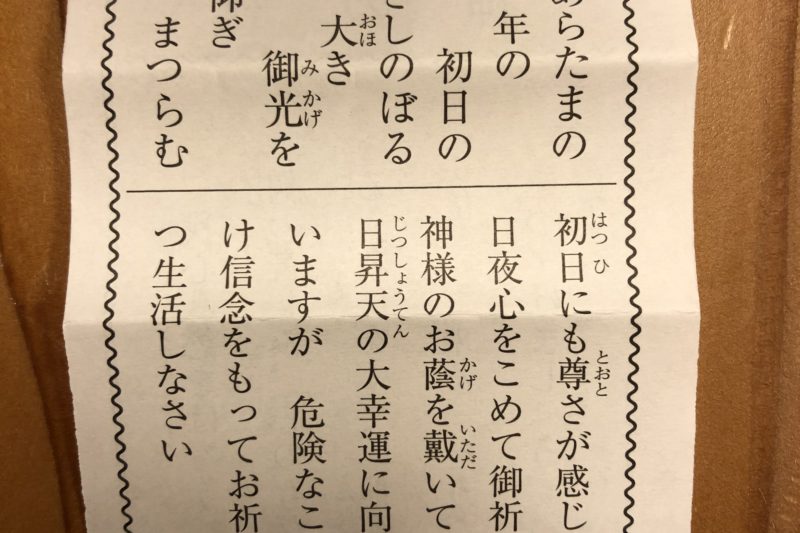 あらたまの
年の
初日の
さしのぼる
大き
御光を
仰ぎ
まつらむ
初日にも尊さが感じ
日夜心をこめて御祈
神様のお蔭を戴いて
日昇天の大幸運に向
いますが 危険なこ
け信念をもってお祈
つ生活しなさい